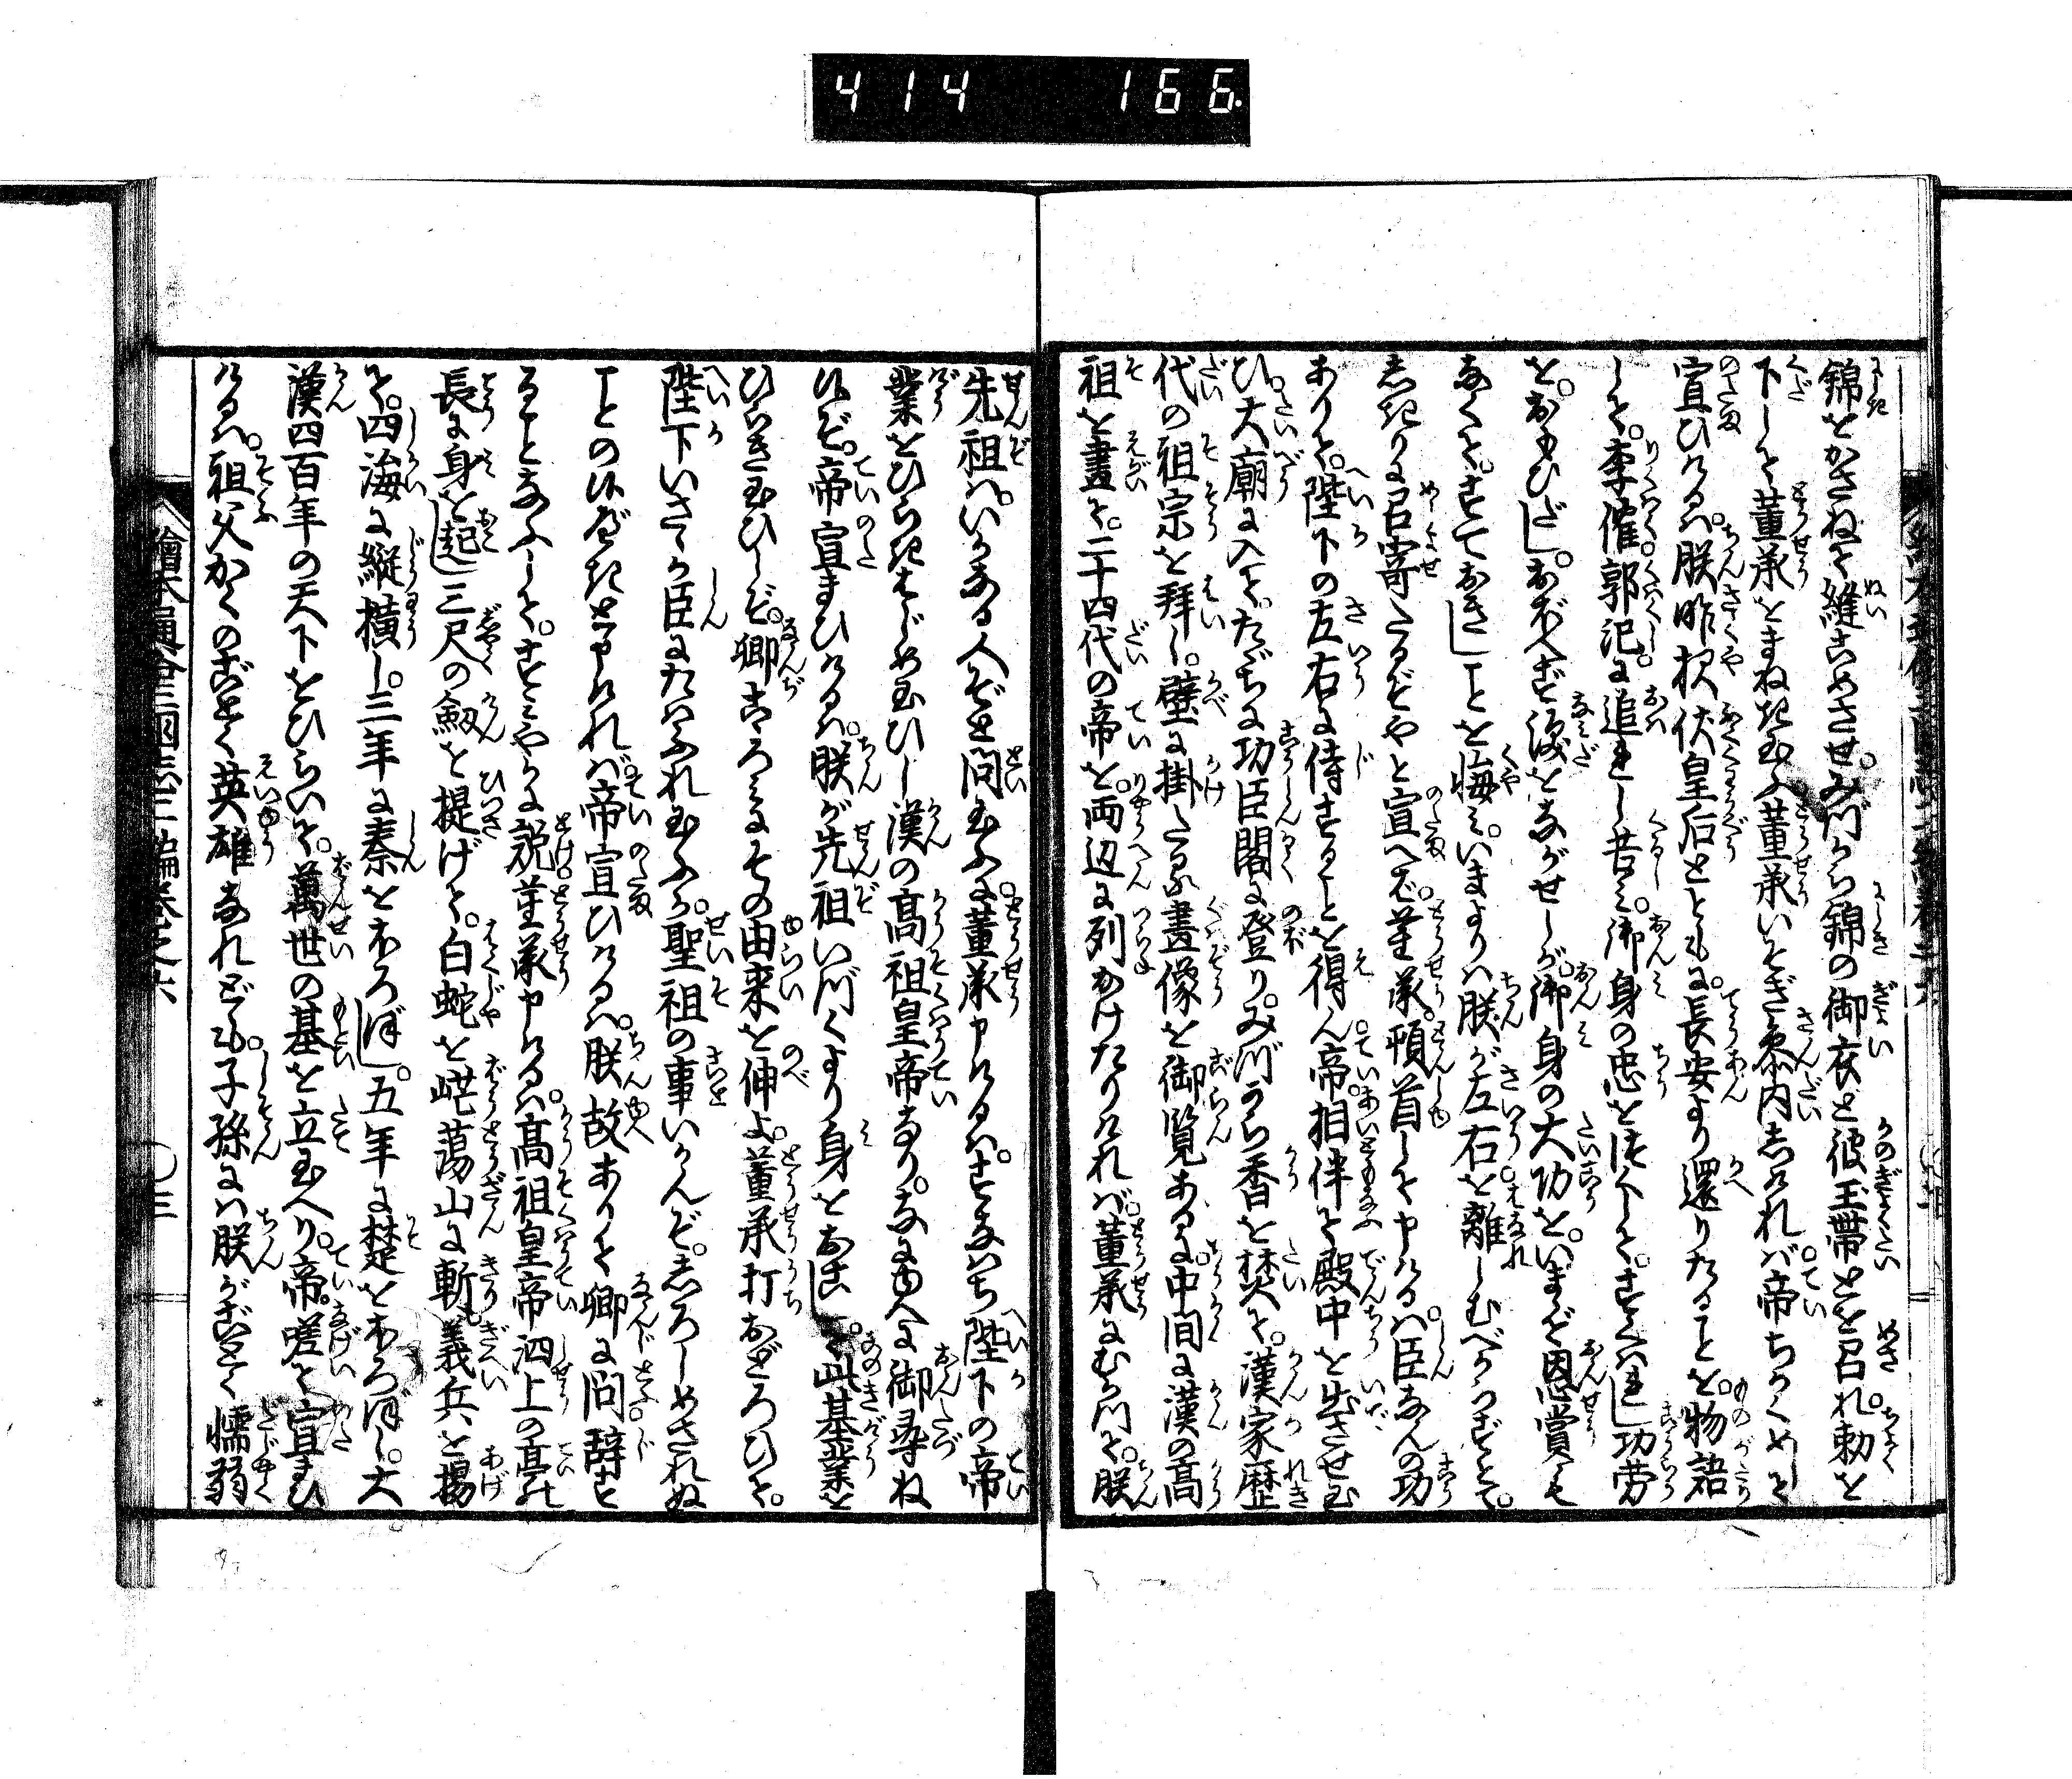 414 166
錦をかさねて縫こめさせ。みづから錦の御衣と彼玉帯とを召れ勅を
下して董承をまねき玉ふ董承いそぎ参内しければ帝ちかくめして
宣ひけるは。朕昨夜伏皇后とともに。長安より還りたることを。物語
して。李傕郭汜に追れし苦み。御身の忠をつくして。すくはれし功労
を。おもひだし。おぼへず涙をながせしが御身の大功を。いまだ恩賞も
なくて。すておきしことを悔み。いまよりは朕が左右を離しむべからずとて。
しきりに召寄たるぞやと宣へば。董承頓首して申けるは。臣なんの功
ありて。陛下の左右に侍することを得ん帝。相伴て殿中を出させ玉
ひ。大廟に入て。たゞちに功臣閣に登り。みづから香を焚て。漢家歴
代の祖宗を拝し。壁に掛たる画像を御覧ある。中間に漢の高
祖を画て。二十四代の帝を。両辺に列ねかけたりければ。董承にむかつて。朕
先祖は。いかなる人ぞと問玉ふに。董承申けるは。すなはち陛下の帝
業をひらきはじめ玉ひし漢の高祖皇帝なり。なにゆへに御尋ね
候ぞ。帝宣まひけるは。朕が先祖いづくより身をおこして。此基業を
ひらき玉ひしぞ。卿こゝろみにその由来を伸よ。董承打おどろひて。
陛下いさゝか臣にたはふれ玉ふか。聖祖の事いかんぞ。しろしめされぬ
ことの候べきと申ければ。帝宣ひけるは。朕故ありて卿に問。辞す
ることなふして。すみやかに説。董承申けるは。高祖皇帝泗上の亭の
長に身を起し三尺の劔を提げて。白蛇を芒蕩山に斬。義兵を揚
て。四海に縦横し。三年に秦をほろぼし。五年に楚をほろぼし。大
漢四百年の天下をひらいて。萬世の基を立玉へり。帝。嗟て宣まひ
けるは。祖父かくのごとく英雄なれども。子孫には朕がごとく懦弱
繪本通俗三國志二編巻之六 〇三